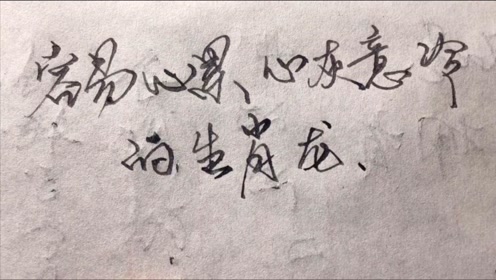 容易心累、心灰意冷
的生肖龙、